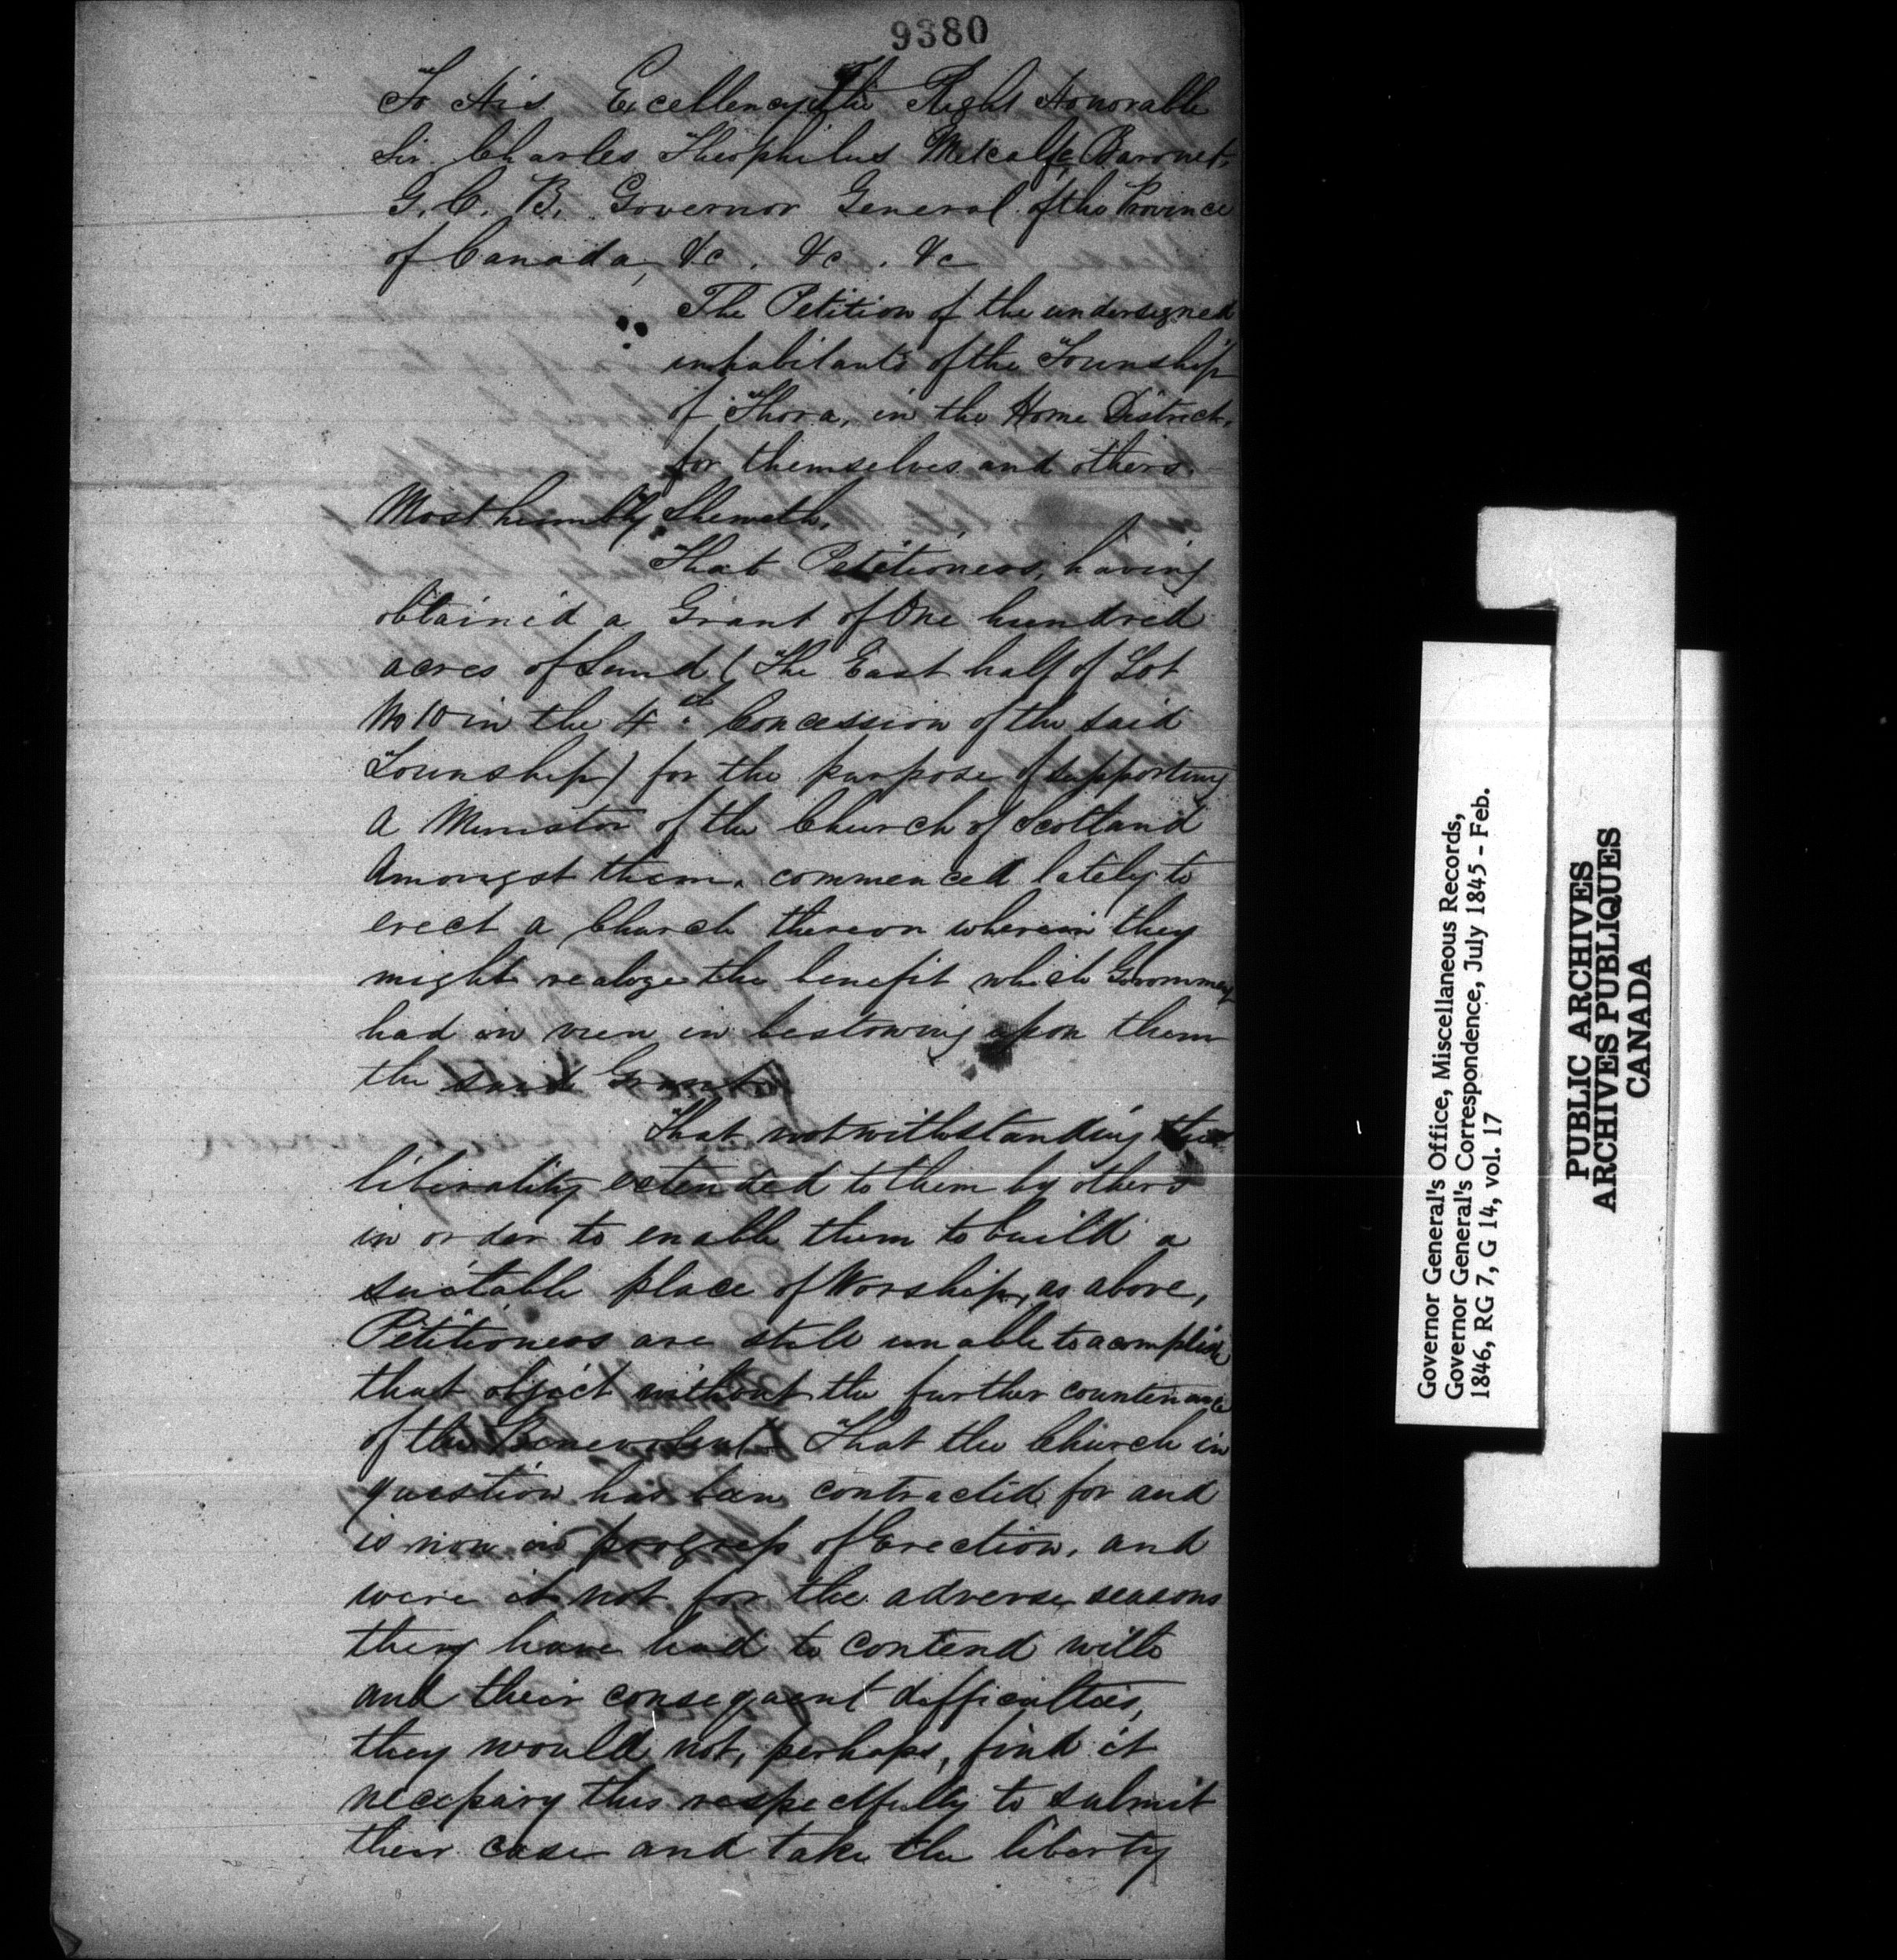 9380
To His Excellency The Right Honorable
Sir Charles Theophilus Metcalfe, Baronet,
G. C. B. Governor General of the Province
of Canada, &c. &c. &c
The Petition of the undersigned
inhabitants of the Township
of Thora, in the Home District,
for themselves and others.
Most humbly Sheweth,
That Petitioners, having
obtained a Grant of One hundred
acres of Land (The East half of Lot
No 10 in the 4th Concession of the said
Township) for the purpose of supporting
a Minister of the Church of Scotland
Amongst them, commenced lately to
erect a Church thereon wherein they
might realize the benefit which Government
had in view in bestowing upon them
the said Grant.
That notwithstanding the
liberality extended to them by others
in order to enable them to build a
suitable place of Worship, as above,
Petitioners are still unable to acomplish
that object without the further countenance
of the Benevolent. That the Church in
question has been contracted for and
is now in progress of Erection, and
were it not for the adverse seasons
they have had to contend with
and their consequent difficulties,
they would not, perhaps, find it
necessary thus respectfully to submit
their case and take the liberty
Governor General's Office, Miscellaneous Records,
Governor General's Correspondence, July 1845 - Feb.
1846, RG 7, G 14, vol. 17
PUBLIC ARCHIVES
ARCHIVES PUBLIQUES
CANADA